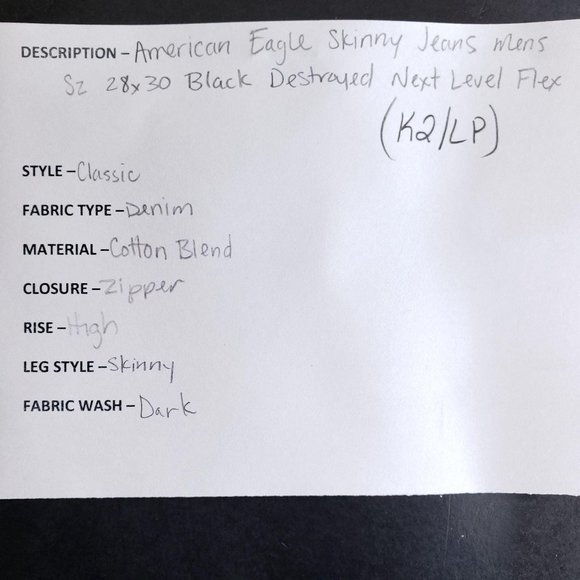 DESCRIPTION – American Eagle Skinny Jeans Mens
Sz 28x30 Black Destroyed Next Level Flex
(K2/LP)
STYLE – Classic
FABRIC TYPE – Denim
MATERIAL – Cotton Blend
CLOSURE – Zipper
RISE – High
LEG STYLE – Skinny
FABRIC WASH – Dark